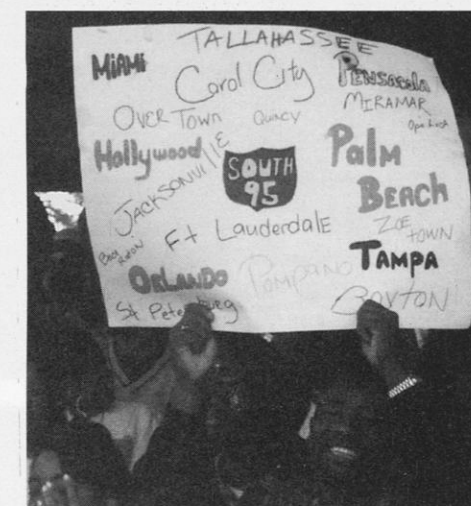 TALLAHASSEE
MIAMI
Carol City
PENSACOLA
MIRAMAR
OVER TOWN
QUINCY
Opa Locka
Hollywood
JACKSONVILLE
SOUTH
95
PALM
BEACH
Ft Lauderdale
ZOE
TOWN
Boca
Raton
ORLANDO
POMPANO
TAMPA
St Petersburg
BOYTON